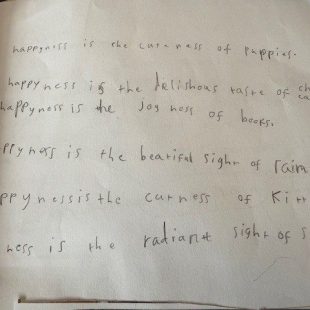 happyness is the cuteness of puppies.
happyness is the delishous taste of ch
happyness is the joyness of books.
ppyness is the beatiful sight of rain
ppynessisthe cutness of Kitt
ness is the radiant sight of s